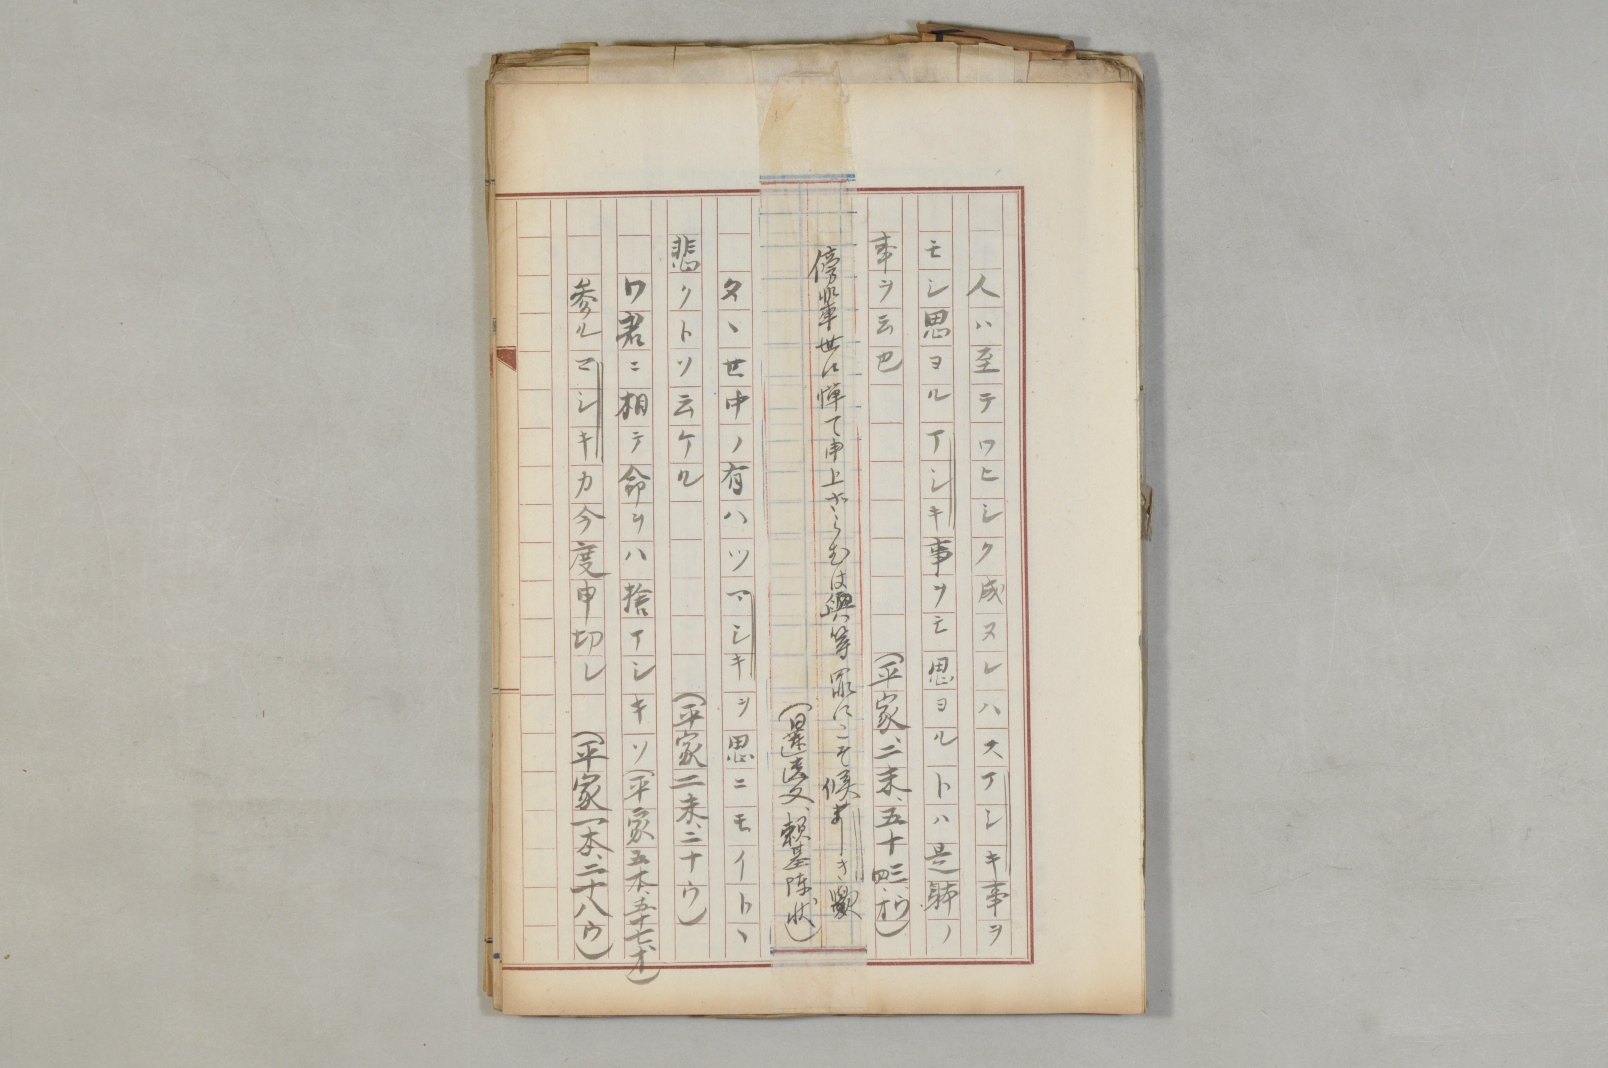 人ハ至テワヒシク成ヌレハスアシキ事ヲ
モシ思ヨルアシキ事ヲモ思ヨルトハ是躰ノ
事ヲ云也　（平家、二末、五十四、オ）
傍輩世に憚て申上ざらむは與等罪にこそ候まじき歟
（遺文、頼基陳状）
タヽ世中ノ有ハツマシキヲ思ニモイトヽ
悲クトソ云ケル　（平家二末、二十ウ）
ワ君ニ相テ命ヲハ捨マシキソ（平家五本、五十七オ）
参ルマシキカ今度申切レ　（平家一本、二十八ウ）